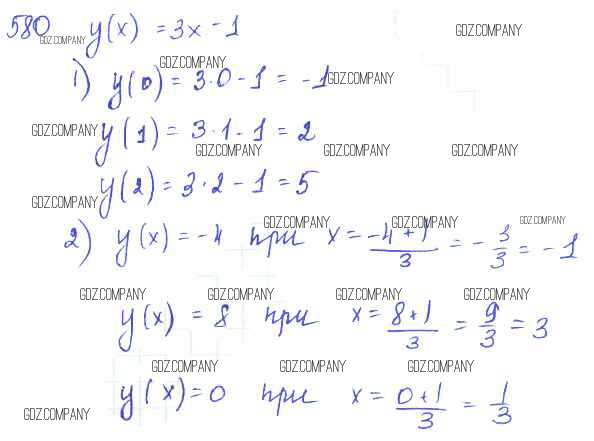 580 y(x) = 3x - 1 GDZ.COMPANY
GDZ.COMPANY
GDZ.COMPANY
1) y(0) = 3·0 - 1 = -1 GDZ.COMPANY
GDZ.COMPANY y(1) = 3·1 - 1 = 2
GDZ.COMPANY GDZ.COMPANY GDZ.COMPANY
GDZ.COMPANY y(2) = 3·2 - 1 = 5
GDZ.COMPANY GDZ.COMPANY GDZ.COMPANY
2) y(x) = -4 при x = (-4+1)/3 = -3/3 = -1
GDZ.COMPANY GDZ.COMPANY GDZ.COMPANY GDZ.COMPANY
y(x) = 8 при x = (8+1)/3 = 9/3 = 3
GDZ.COMPANY GDZ.COMPANY GDZ.COMPANY
y(x) = 0 при x = (0+1)/3 = 1/3
GDZ.COMPANY